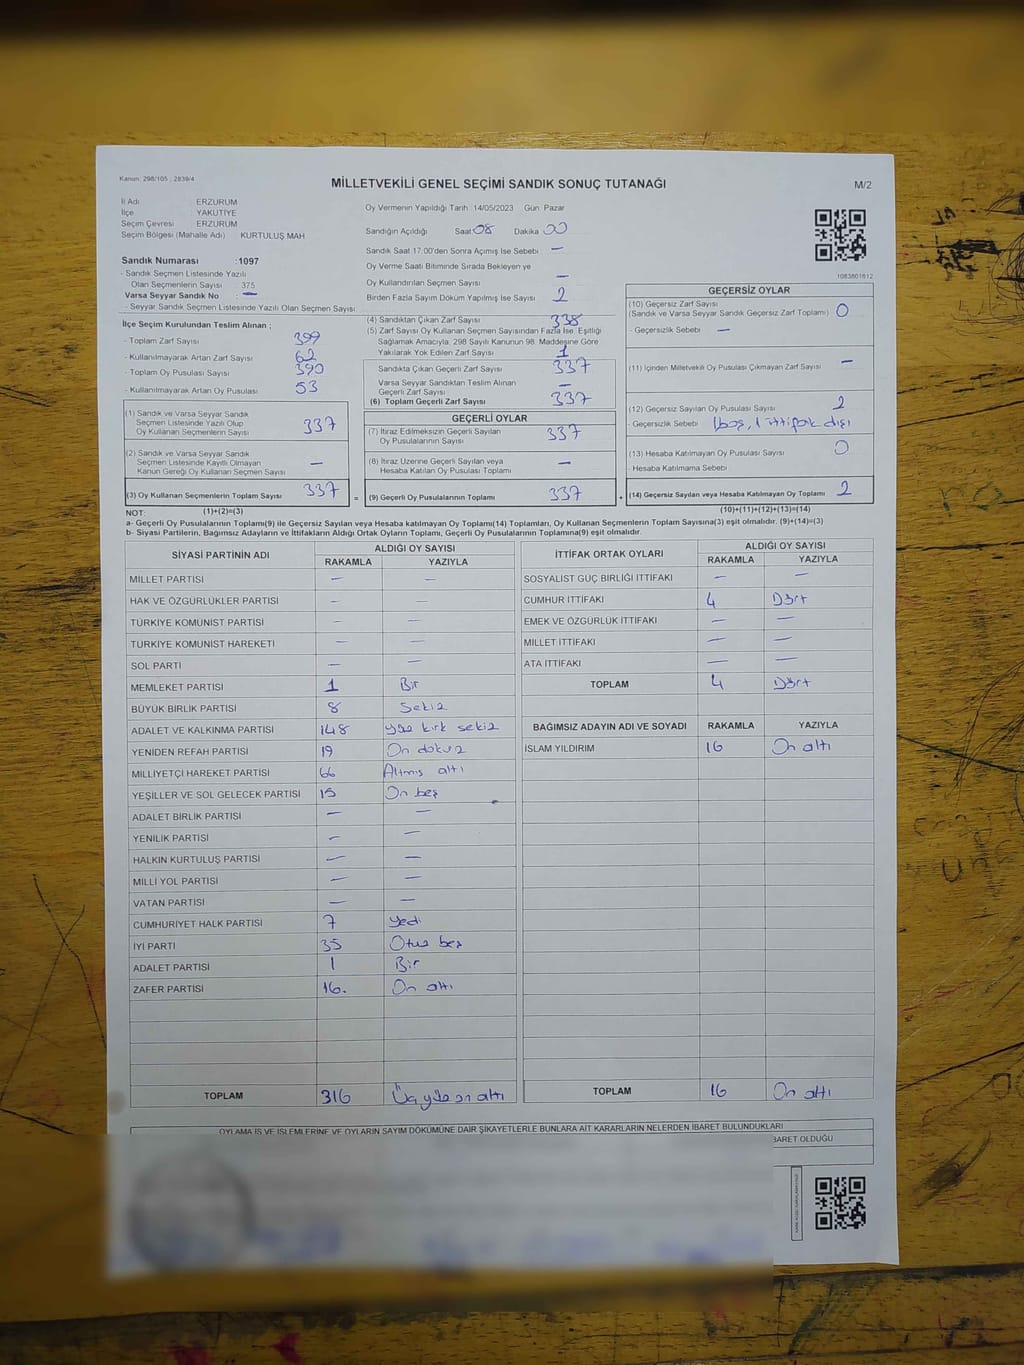 Kanun: 298/105 ; 2839/4
MİLLETVEKİLİ GENEL SEÇİMİ SANDIK SONUÇ TUTANAĞI
M/2
İl Adı ERZURUM
İlçe YAKUTİYE
Seçim Çevresi ERZURUM
Seçim Bölgesi (Mahalle Adı) KURTULUŞ MAH
Sandık Numarası :1097
- Sandık Seçmen Listesinde Yazılı
Olan Seçmenlerin Sayısı 375
Varsa Seyyar Sandık No : —
- Seyyar Sandık Seçmen Listesinde Yazılı Olan Seçmen Sayısı
İlçe Seçim Kurulundan Teslim Alınan ;
- Toplam Zarf Sayısı 399
- Kullanılmayarak Artan Zarf Sayısı 62
- Toplam Oy Pusulası Sayısı 390
- Kullanılmayarak Artan Oy Pusulası 53
(1) Sandık ve Varsa Seyyar Sandık
Seçmen Listesinde Yazılı Olup
Oy Kullanan Seçmenlerin Sayısı 337
(2) Sandık ve Varsa Seyyar Sandık
Seçmen Listesinde Kayıtlı Olmayan
Kanun Gereği Oy Kullanan Seçmen Sayısı —
(3) Oy Kullanan Seçmenlerin Toplam Sayısı 337
Oy Vermenin Yapıldığı Tarih :14/05/2023 Gün: Pazar
Sandığın Açıldığı Saat 08 Dakika 00
Sandık Saat 17:00'den Sonra Açımış İse Sebebi : —
Oy Verme Saati Bitiminde Sırada Bekleyen ve
Oy Kullandırılan Seçmen Sayısı —
Birden Fazla Sayım Döküm Yapılmış İse Sayısı 2
(4) Sandıktan Çıkan Zarf Sayısı 338
(5) Zarf Sayısı Oy Kullanan Seçmen Sayısından Fazla İse; Eşitliği
Sağlamak Amacıyla, 298 Sayılı Kanunun 98. Maddesine Göre
Yakılarak Yok Edilen Zarf Sayısı 1
Sandıkta Çıkan Geçerli Zarf Sayısı 337
Varsa Seyyar Sandıktan Teslim Alınan
Geçerli Zarf Sayısı —
(6) Toplam Geçerli Zarf Sayısı 337
GEÇERLİ OYLAR
(7) İtiraz Edilmeksizin Geçerli Sayılan
Oy Pusulalarının Sayısı 337
(8) İtiraz Üzerine Geçerli Sayılan veya
Hesaba Katılan Oy Pusulası Toplamı —
= (9) Geçerli Oy Pusulalarının Toplamı 337
1083801612
GEÇERSİZ OYLAR
(10) Geçersiz Zarf Sayısı
(Sandık ve Varsa Seyyar Sandık Geçersiz Zarf Toplamı) 0
- Geçersizlik Sebebi —
(11) İçinden Milletvekili Oy Pusulası Çıkmayan Zarf Sayısı —
(12) Geçersiz Sayılan Oy Pusulası Sayısı 2
- Geçersizlik Sebebi 1 boş, 1 ittifak dışı
(13) Hesaba Katılmayan Oy Pusulası Sayısı 0
- Hesaba Katılmama Sebebi
+ (14) Geçersiz Sayılan veya Hesaba Katılmayan Oy Toplamı 2
NOT: (1)+(2)=(3) (10)+(11)+(12)+(13)=(14)
a- Geçerli Oy Pusulalarının Toplamı(9) ile Geçersiz Sayılan veya Hesaba katılmayan Oy Toplamı(14) Toplamları, Oy Kullanan Seçmenlerin Toplam Sayısına(3) eşit olmalıdır. (9)+(14)=(3)
b- Siyasi Partilerin, Bağımsız Adayların ve İttifakların Aldığı Ortak Oyların Toplamı, Geçerli Oy Pusulalarının Toplamına(9) eşit olmalıdır.
SİYASİ PARTİNİN ADI ALDIĞI OY SAYISI
RAKAMLA YAZIYLA
MİLLET PARTİSİ — —
HAK VE ÖZGÜRLÜKLER PARTİSİ — —
TÜRKİYE KOMÜNİST PARTİSİ — —
TÜRKİYE KOMÜNİST HAREKETİ — —
SOL PARTİ — —
MEMLEKET PARTİSİ 1 Bir
BÜYÜK BİRLİK PARTİSİ 8 Sekiz
ADALET VE KALKINMA PARTİSİ 148 yüz kırk sekiz
YENİDEN REFAH PARTİSİ 19 On dokuz
MİLLİYETÇİ HAREKET PARTİSİ 66 Altmış altı
YEŞİLLER VE SOL GELECEK PARTİSİ 15 On beş
ADALET BİRLİK PARTİSİ — —
YENİLİK PARTİSİ — —
HALKIN KURTULUŞ PARTİSİ — —
MİLLİ YOL PARTİSİ — —
VATAN PARTİSİ — —
CUMHURİYET HALK PARTİSİ 7 yedi
İYİ PARTİ 35 Otuz beş
ADALET PARTİSİ 1 Bir
ZAFER PARTİSİ 16. On altı
TOPLAM 316 Üç yüz on altı
İTTİFAK ORTAK OYLARI ALDIĞI OY SAYISI
RAKAMLA YAZIYLA
SOSYALİST GÜÇ BİRLİĞİ İTTİFAKI — —
CUMHUR İTTİFAKI 4 Dört
EMEK VE ÖZGÜRLÜK İTTİFAKI — —
MİLLET İTTİFAKI — —
ATA İTTİFAKI — —
TOPLAM 4 Dört
BAĞIMSIZ ADAYIN ADI VE SOYADI RAKAMLA YAZIYLA
İSLAM YILDIRIM 16 On altı
TOPLAM 16 On altı
OYLAMA İŞ VE İŞLEMLERİNE VE OYLARIN SAYIM DÖKÜMÜNE DAİR ŞİKAYETLERLE BUNLARA AİT KARARLARIN NELERDEN İBARET BULUNDUKLARI
BARET OLDUĞU